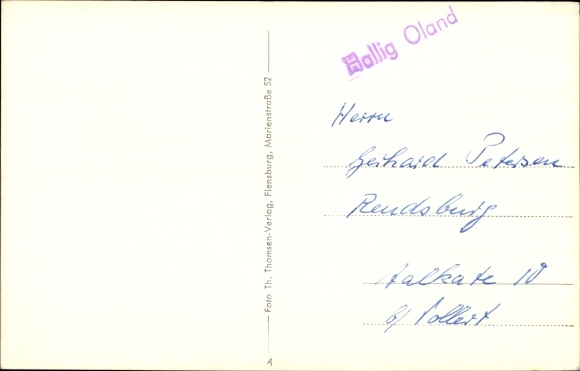 Hallig Oland
Foto Th. Thomsen-Verlag, Flensburg, Marienstraße 52
Herrn
Gerhard Petersen
Rendsburg
Aalkate 10
b/ Vollert
A